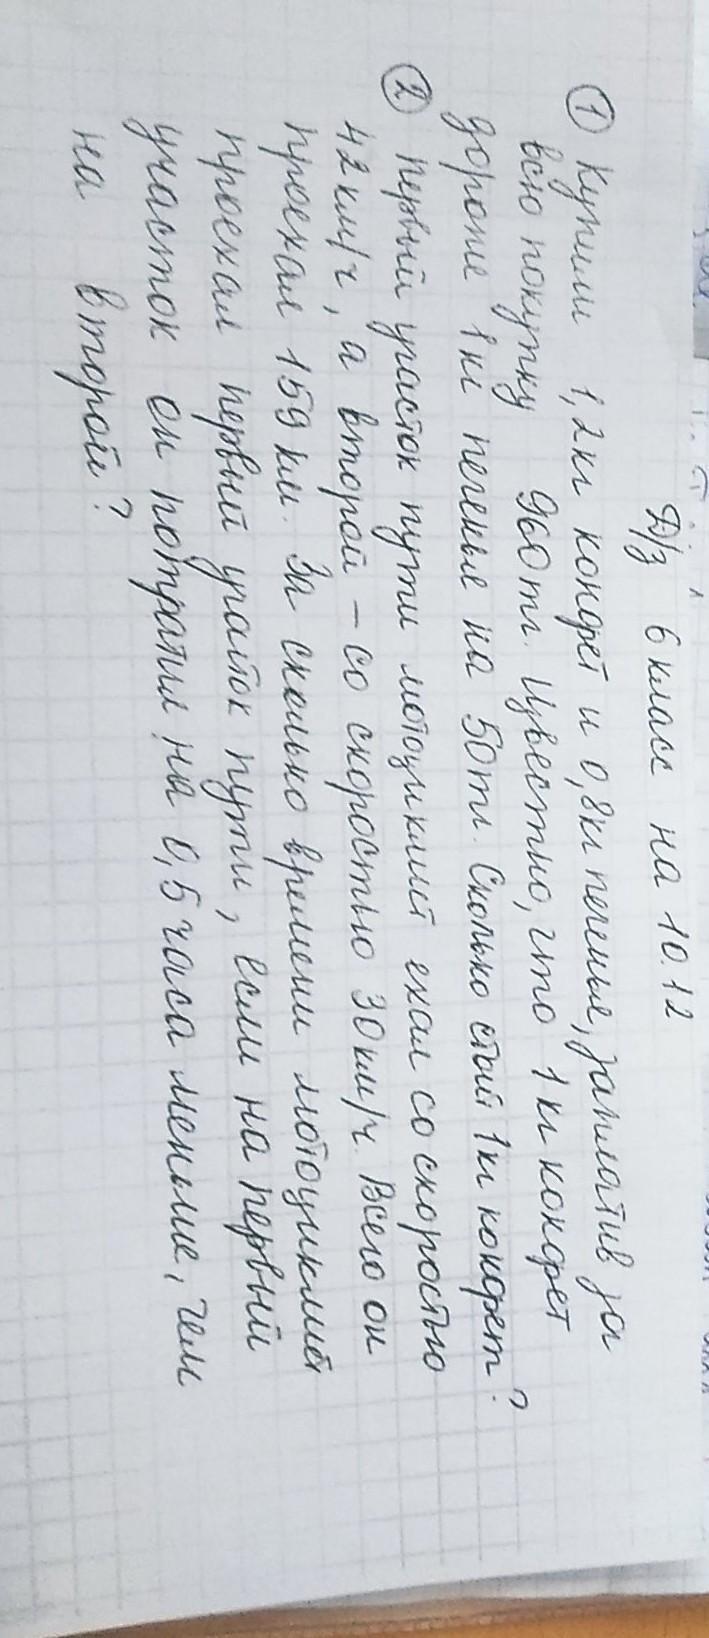 Д/з 6 класс на 10.12
① Купили 1,2 кг конфет и 0,8 кг печенья, заплатив за
всю покупку 960 тг. Известно, что 1 кг конфет
дороже 1 кг печенья на 50 тг. Сколько стоит 1 кг конфет?
② Первый участок пути мотоциклист ехал со скоростью
42 км/ч, а второй – со скоростью 30 км/ч. Всего он
проехал 159 км. За сколько времени мотоциклист
проехал первый участок пути, если на первый
участок он потратил на 0,5 часа меньше, чем
на второй?